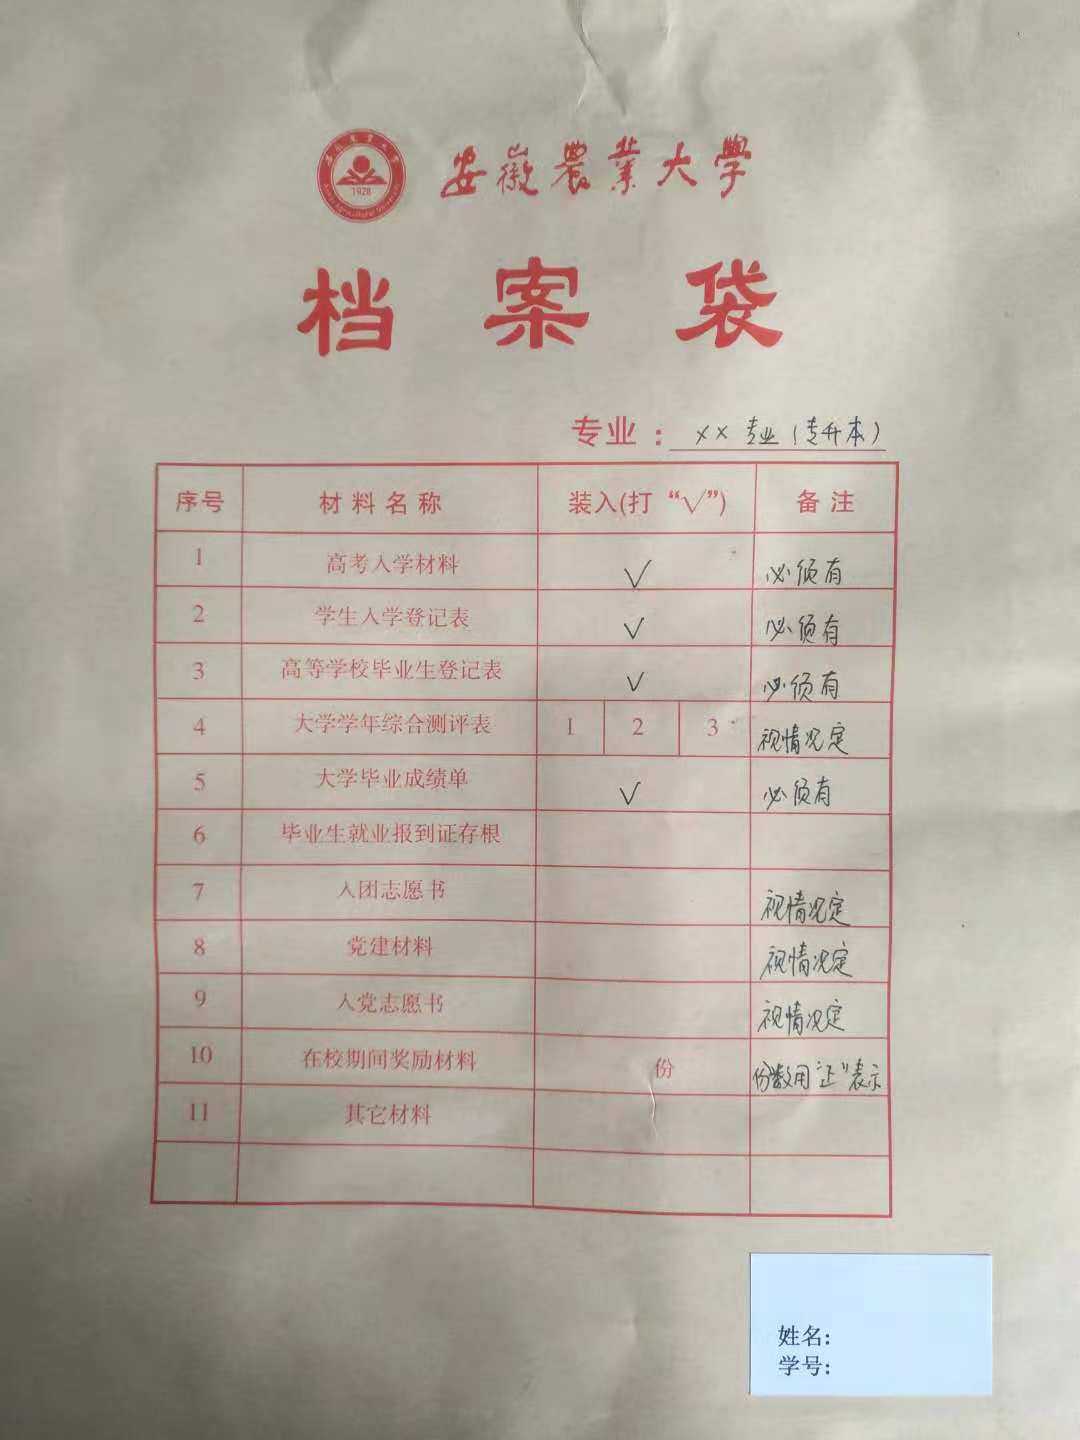 安徽農業大學
1928
档案袋
专业：××专业(专升本)
序号 材料名称 装入(打“√”) 备注
1 高考入学材料 √ 必须有
2 学生入学登记表 √ 必须有
3 高等学校毕业生登记表 √ 必须有
4 大学学年综合测评表 1 2 3 视情况定
5 大学毕业成绩单 √ 必须有
6 毕业生就业报到证存根
7 入团志愿书 视情况定
8 党建材料 视情况定
9 入党志愿书 视情况定
10 在校期间奖励材料 份 份数用“正”表示
11 其它材料
姓名:
学号: